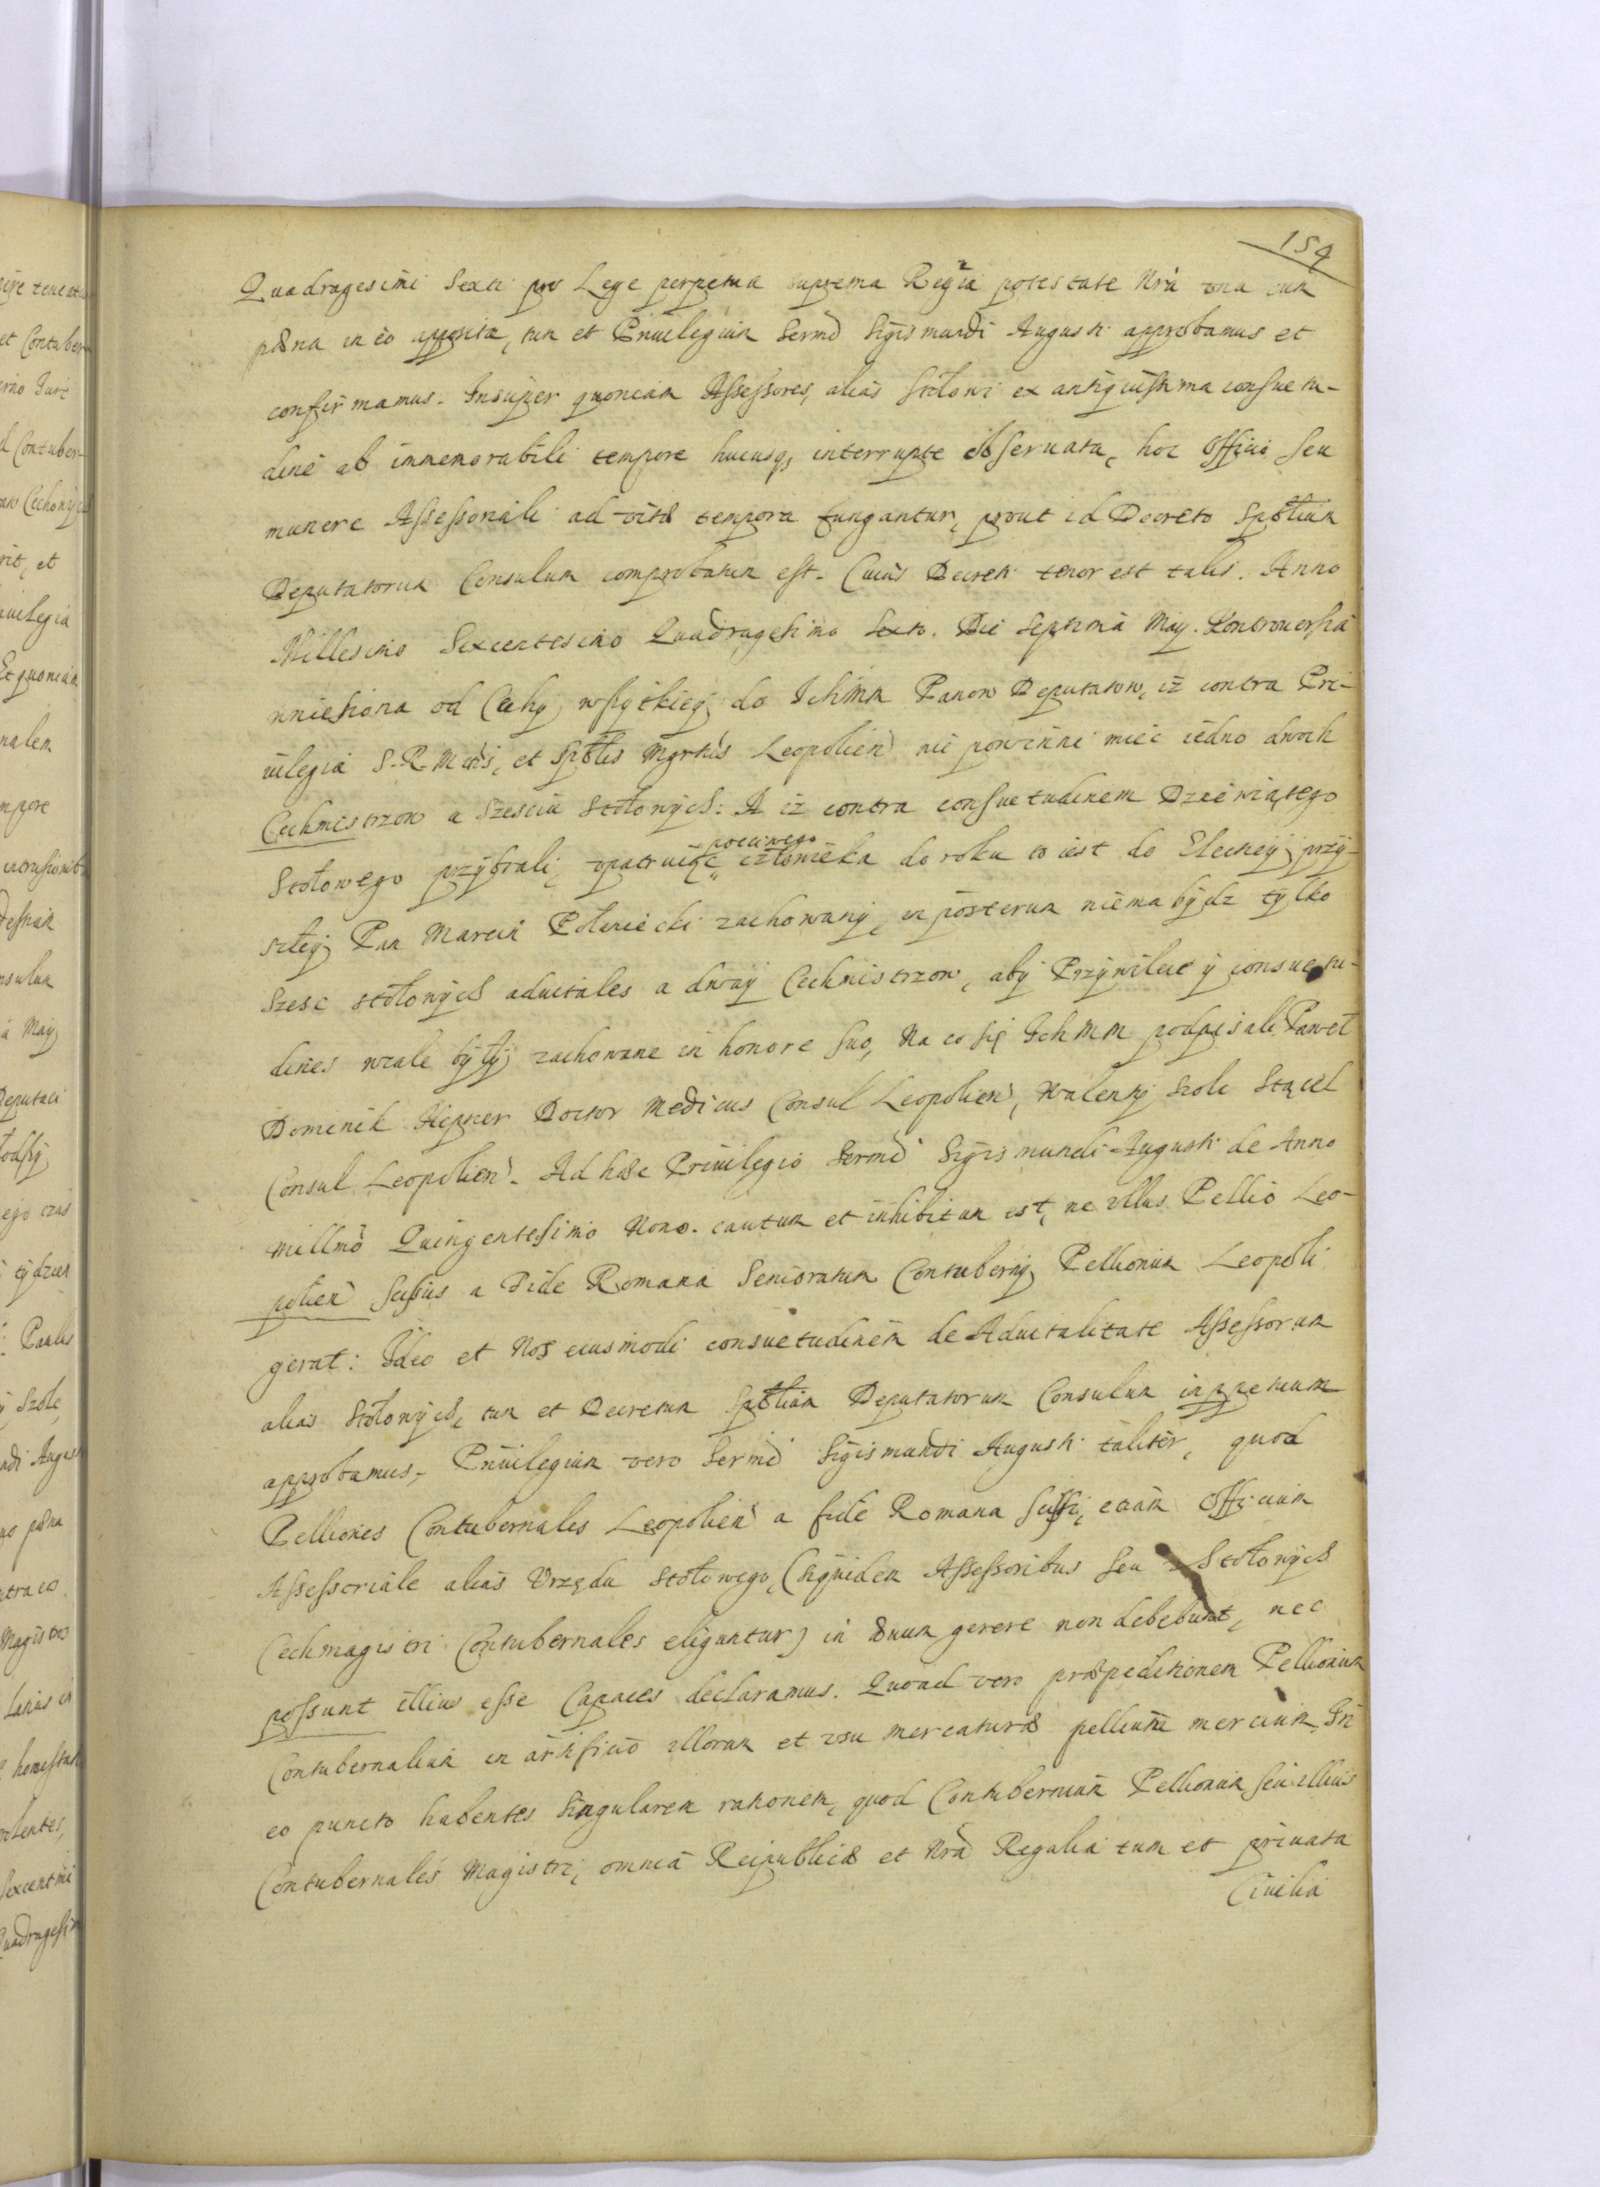 159
Quadragesimi Sexti pro Lege perpetua suprema Regia potestate Nrá vna cum
pœna in eo apposita, tum et Priuilegium Sermi Sigismundi Augusti approbamus et
confirmamus. Insuper quoniam Assessores, alias Stołowi ex antiquissima consuetu-
dine ab immemorabili tempore hucusq, interrupte obseruata, hoc Officio seu
munere Assessoriali ad vitæ tempora fungantur, prout id Decreto Spbliũm
Deputatorum Consulum comprobatum est. Cuius Decreti tenor est talis. Anno
Millesimo Sexcentesimo Quadragesimo Sexto. Die Septima May. Kontrowersia
wniesiona od Cechu wszytkiego do Ichmm Panow Deputatow, iż contra Pri-
uilegia S. R. Mtis, et Spblis Mgrtus Leopolien nie powinni miec iedno dwoch
Cechmistrzow a Szesciu Stołowych: A iż contra consuetudinem Dziewiątego
Stołowego przybrali, vpatruiąc poczciwego człowieka do roku to iest do Elekcyi przy-
szłey Pan Marcin Poleniecki zachowany, in posterum niema bydz tylko
Szesc stołowych aduitales a dway Cechmistrzow, aby Przywileie y consuetu-
dines wcale były zachowane in honore suo, Na co się Ich MM podpisali Paweł
Dominik Hepner Doctor Medicus Consul Leopolien, Walenty Szole Stącel
Consul Leopolien. Ad hæc Priuilegio Sermi Sigismundi Augusti de Anno
Millmo Quingentesimo Nono. cautum et inhibitum est, ne vllus Pellio Leo-
polien scissus a Fide Romana Senioratum Contuberny Pellionum Leopoli
gerat: Ideo et Nos eiusmodi consuetudinem de Aduitalitate Assessorum
alias Stołowych, tum et Decretum Spbliũm Deputatorum Consulum in ppetuum
approbamus, Priuilegium vero Sermi Sigismundi Augusti taliter, quod
Pelliones Contubernales Leopolien a fide Romana scissi, etiam Officium
Assessoriale alias Vrzędu Stołowego, (siquidem Assessoribus seu Stołowych
Cechmagistri Contubernales eliguntur) in æuum gerere non debebunt, nec
possunt illius esse Capaces declaramus. Quoad vero præpeditionem Pellionum
Contubernalium in artificio illorum et vsu mercaturæ pellium mercium. In
eo puncto habentes singularem rationem, quod Contubernium Pellionum seu illius
Contubernales Magistri, omnia Reipublicæ et Nra Regalia tum et priuata
Ciuilia